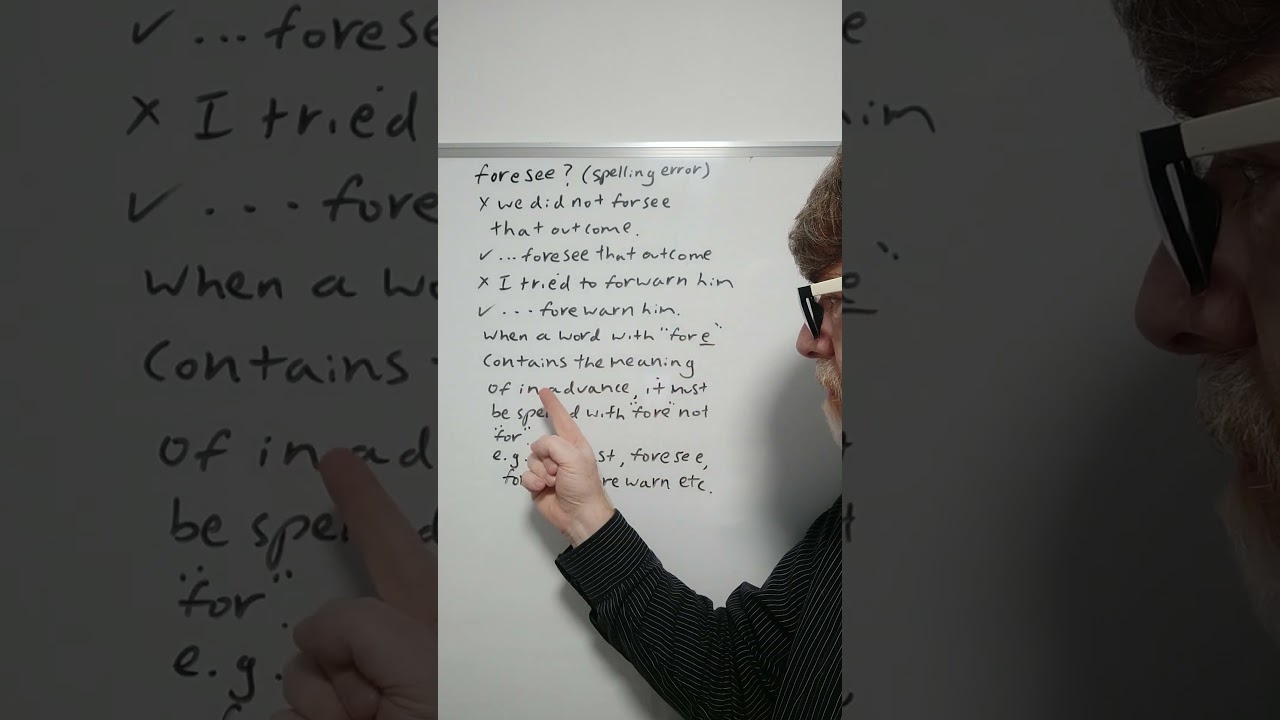 foresee? (spelling error)
x we did not forsee
that outcome.
✓ ... foresee that outcome
x I tried to forwarn him
✓ ... forewarn him.
when a word with "fore"
contains the meaning
of in advance, it must
be spelled with "fore" not
"for".
e.g. foresee,
warn etc.